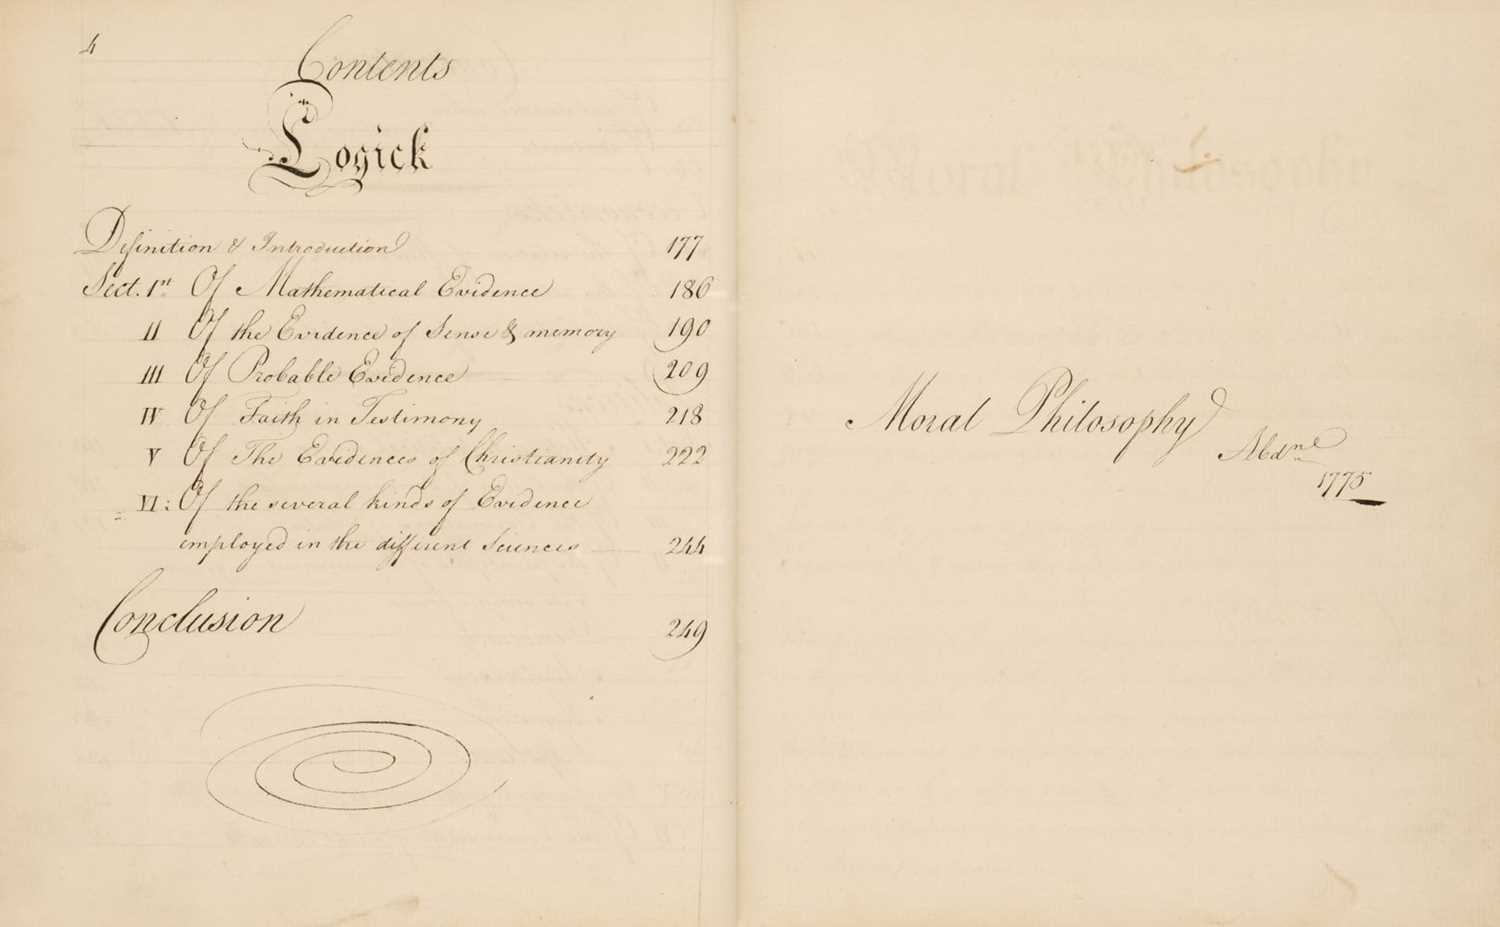 4
Contents
Logick
Definition & Introduction 177
Sect. 1st Of Mathematical Evidence 186
II Of the Evidence of Sense & memory 190
III Of Probable Evidence 209
IV Of Faith in Testimony 218
V Of The Evidences of Christianity 222
VI: Of the several kinds of Evidence
employed in the different Sciences 244
Conclusion 249
Moral Philosophy
Abdne
1775